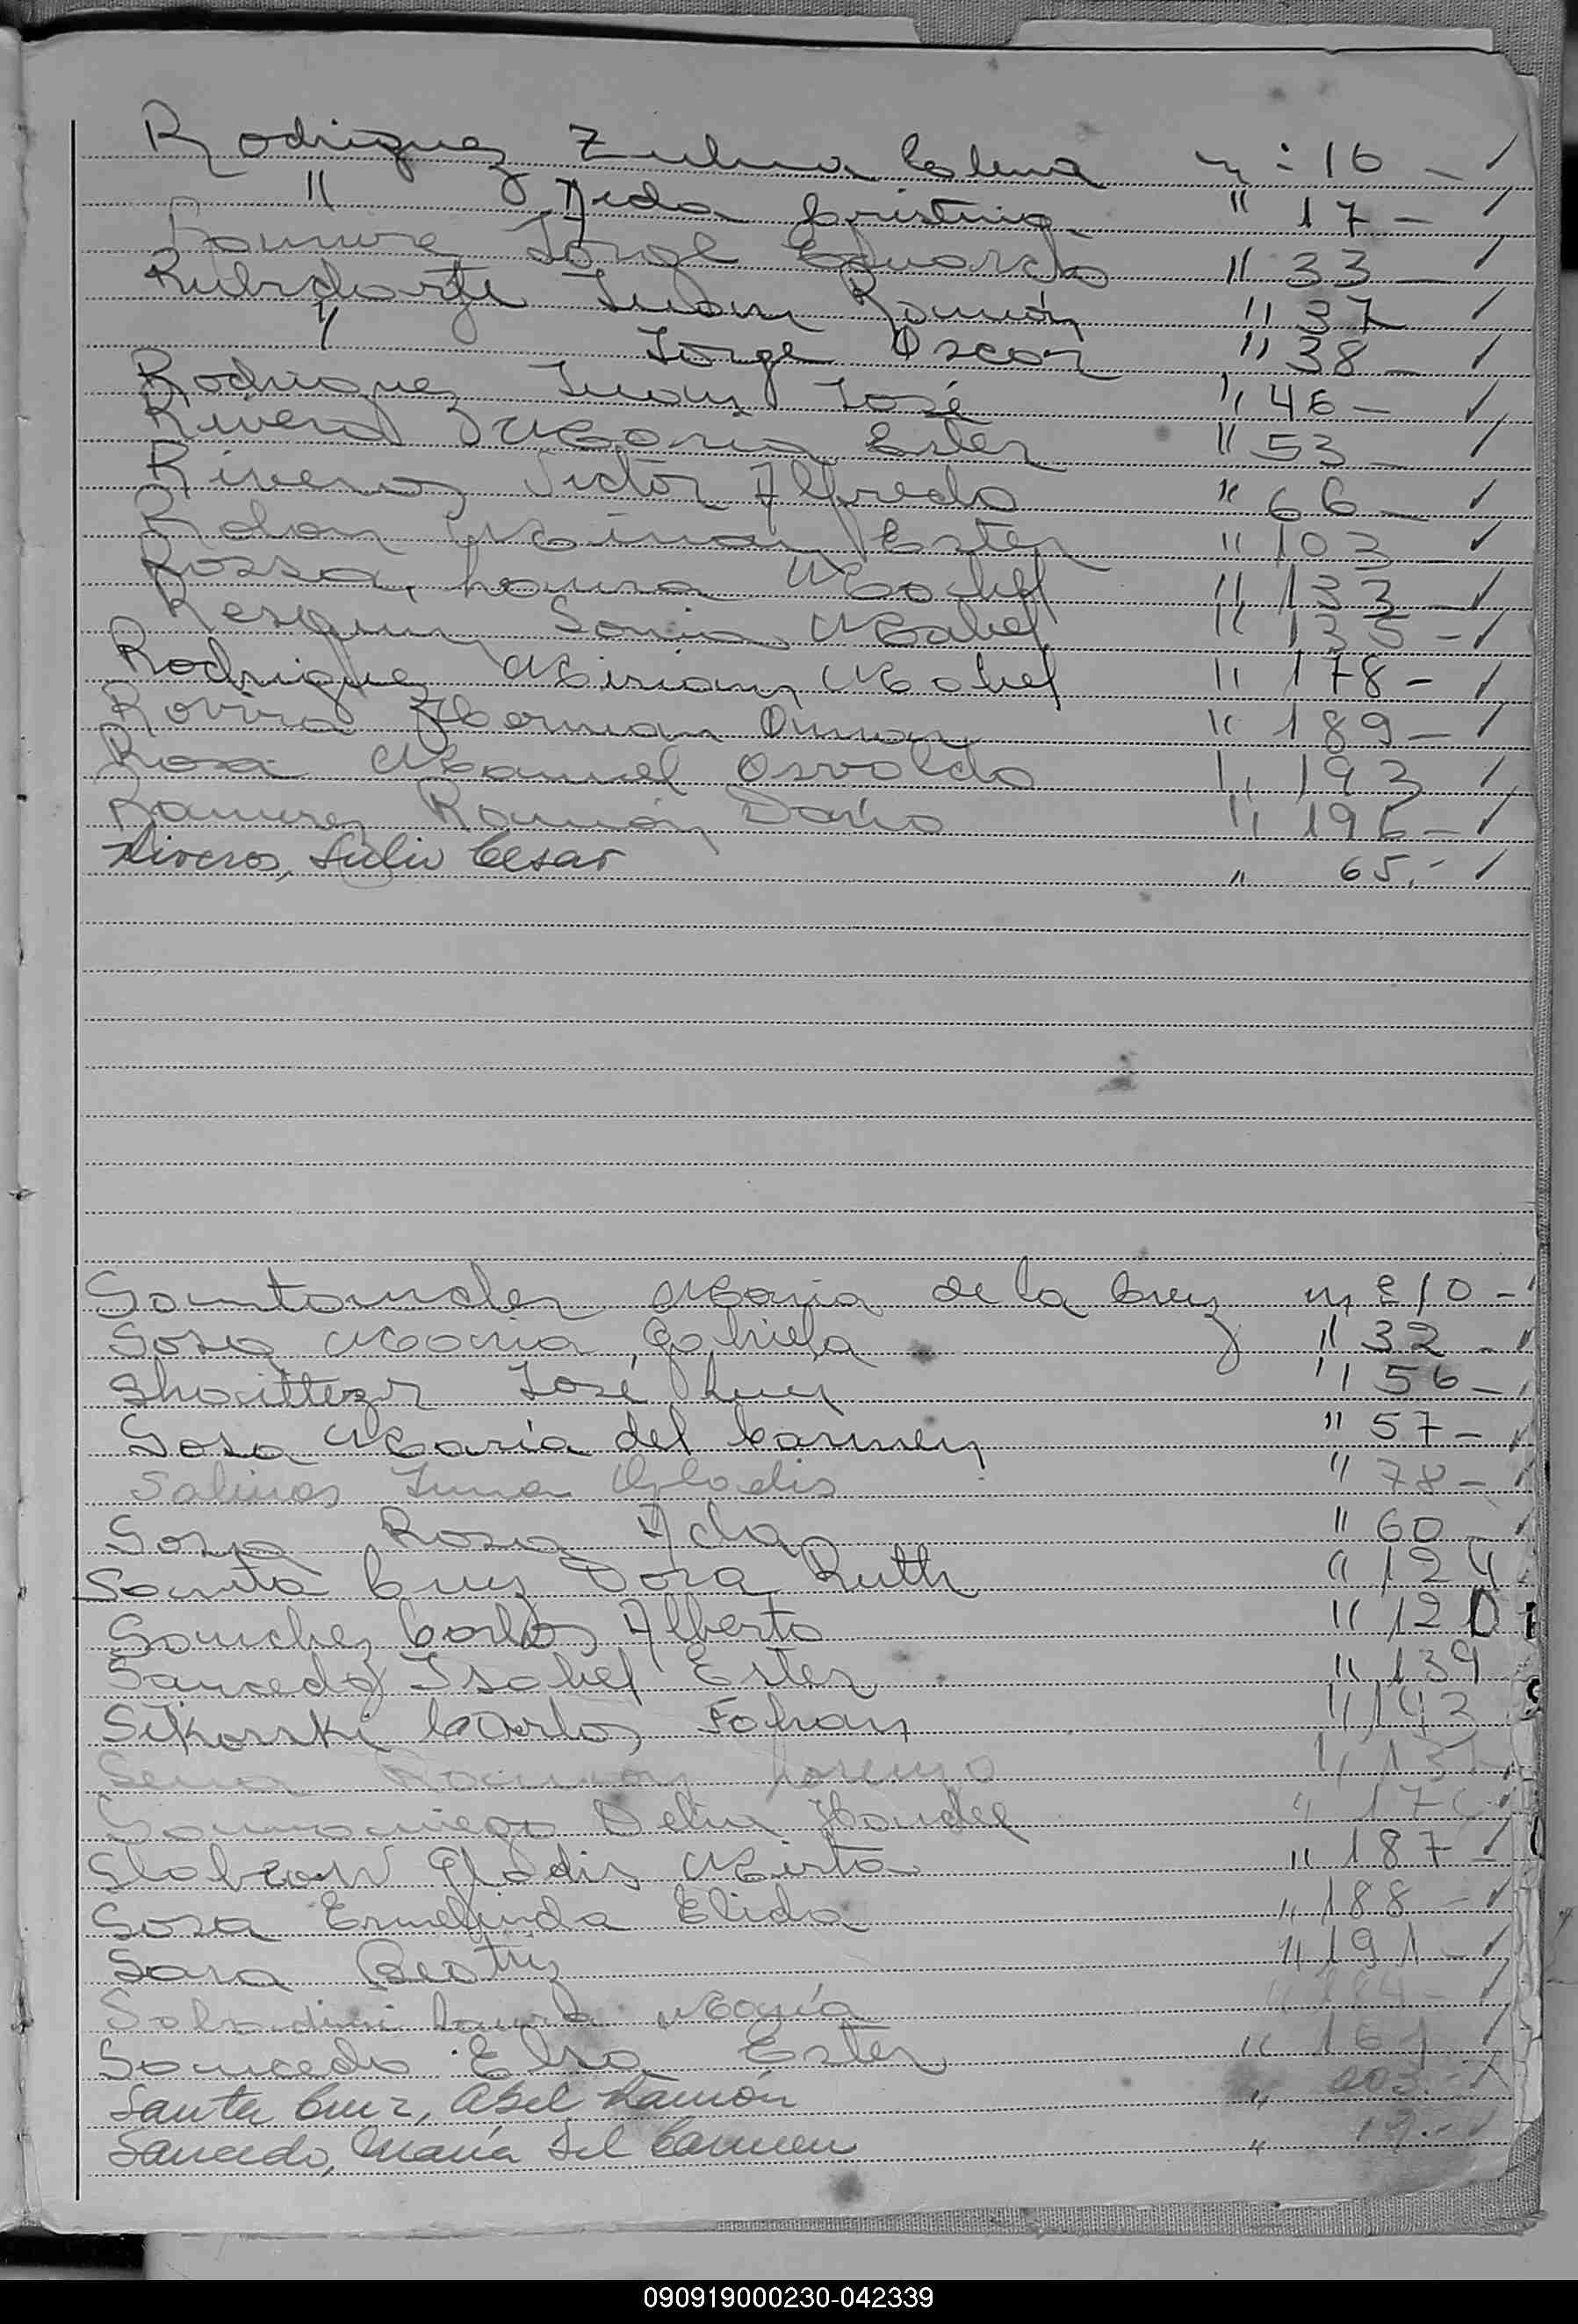 Rodriguez Zulma Elena nº 16 - ✓
" Aida Cristina " 17 - ✓
Jorge Eduardo " 33 - ✓
Juan Ramón " 37 ✓
" Jorge Oscar " 38 - ✓
Rodriguez Juan José " 46 - ✓
Rivero María Ester " 53 - ✓
Riveros Victor Alfredo " 66 - ✓
Rolon Mirian Ester " 103 - ✓
Rossa, Laura Mabel " 133 - ✓
Resquin Sonia Mabel " 135 - ✓
Rodriguez Mirian Mabel " 178 - ✓
Rovira Hernan Omar " 189 - ✓
Rosa Manuel Osvaldo " 193 ✓
Ramirez Ramón Darío " 196 - ✓
Riveros, Julio Cesar " 65.- ✓
Santander Maria de la Cruz nº 10 - ✓
Sosa Maria Gabriela " 32 - ✓
José Luis " 56 -
Sosa María del Carmen " 57 - ✓
Salinas Gladis " 78 - ✓
Sosa Rosa Ada " 60 - ✓
Santa Cruz Dora Ruth " 124
Sanchez Carlos Alberto " 120
Saucedo Isabel Ester " 139
Sikorski Carlos Fabian " 143
Sena Ramón Lorenzo " 131
Samaniego Delia Haydee "
Slobzow Gladis Mirta " 187 - ✓
Sosa Ermelinda Elida " 188 - ✓
Sara Beatriz " 191 - ✓
Laura María " - ✓
Saucedo Elsa Ester " 161 ✓
Santa Cruz, Abel Ramón " 203.-
Saucedo, María del Carmen " .- ✓
090919000230-042339